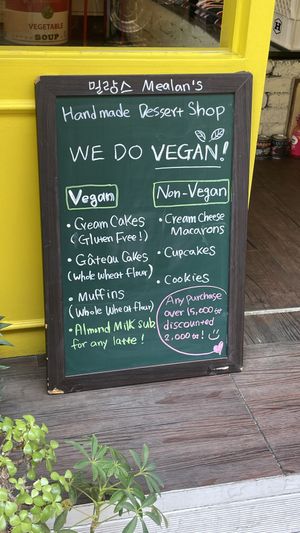 VEGETABLE
SOUP
멀랑스 Mealan's
Handmade Dessert Shop
WE DO VEGAN!
Vegan
• Cream Cakes
(Gluten Free!)
• Gâteau Cakes
(Whole Wheat flour)
• Muffins
(Whole Wheat flour)
• Almond Milk sub
for any latte!
Non-Vegan
• Cream Cheese
Macarons
• Cupcakes
• Cookies
Any purchase
over 15,000 is
discounted
2,000